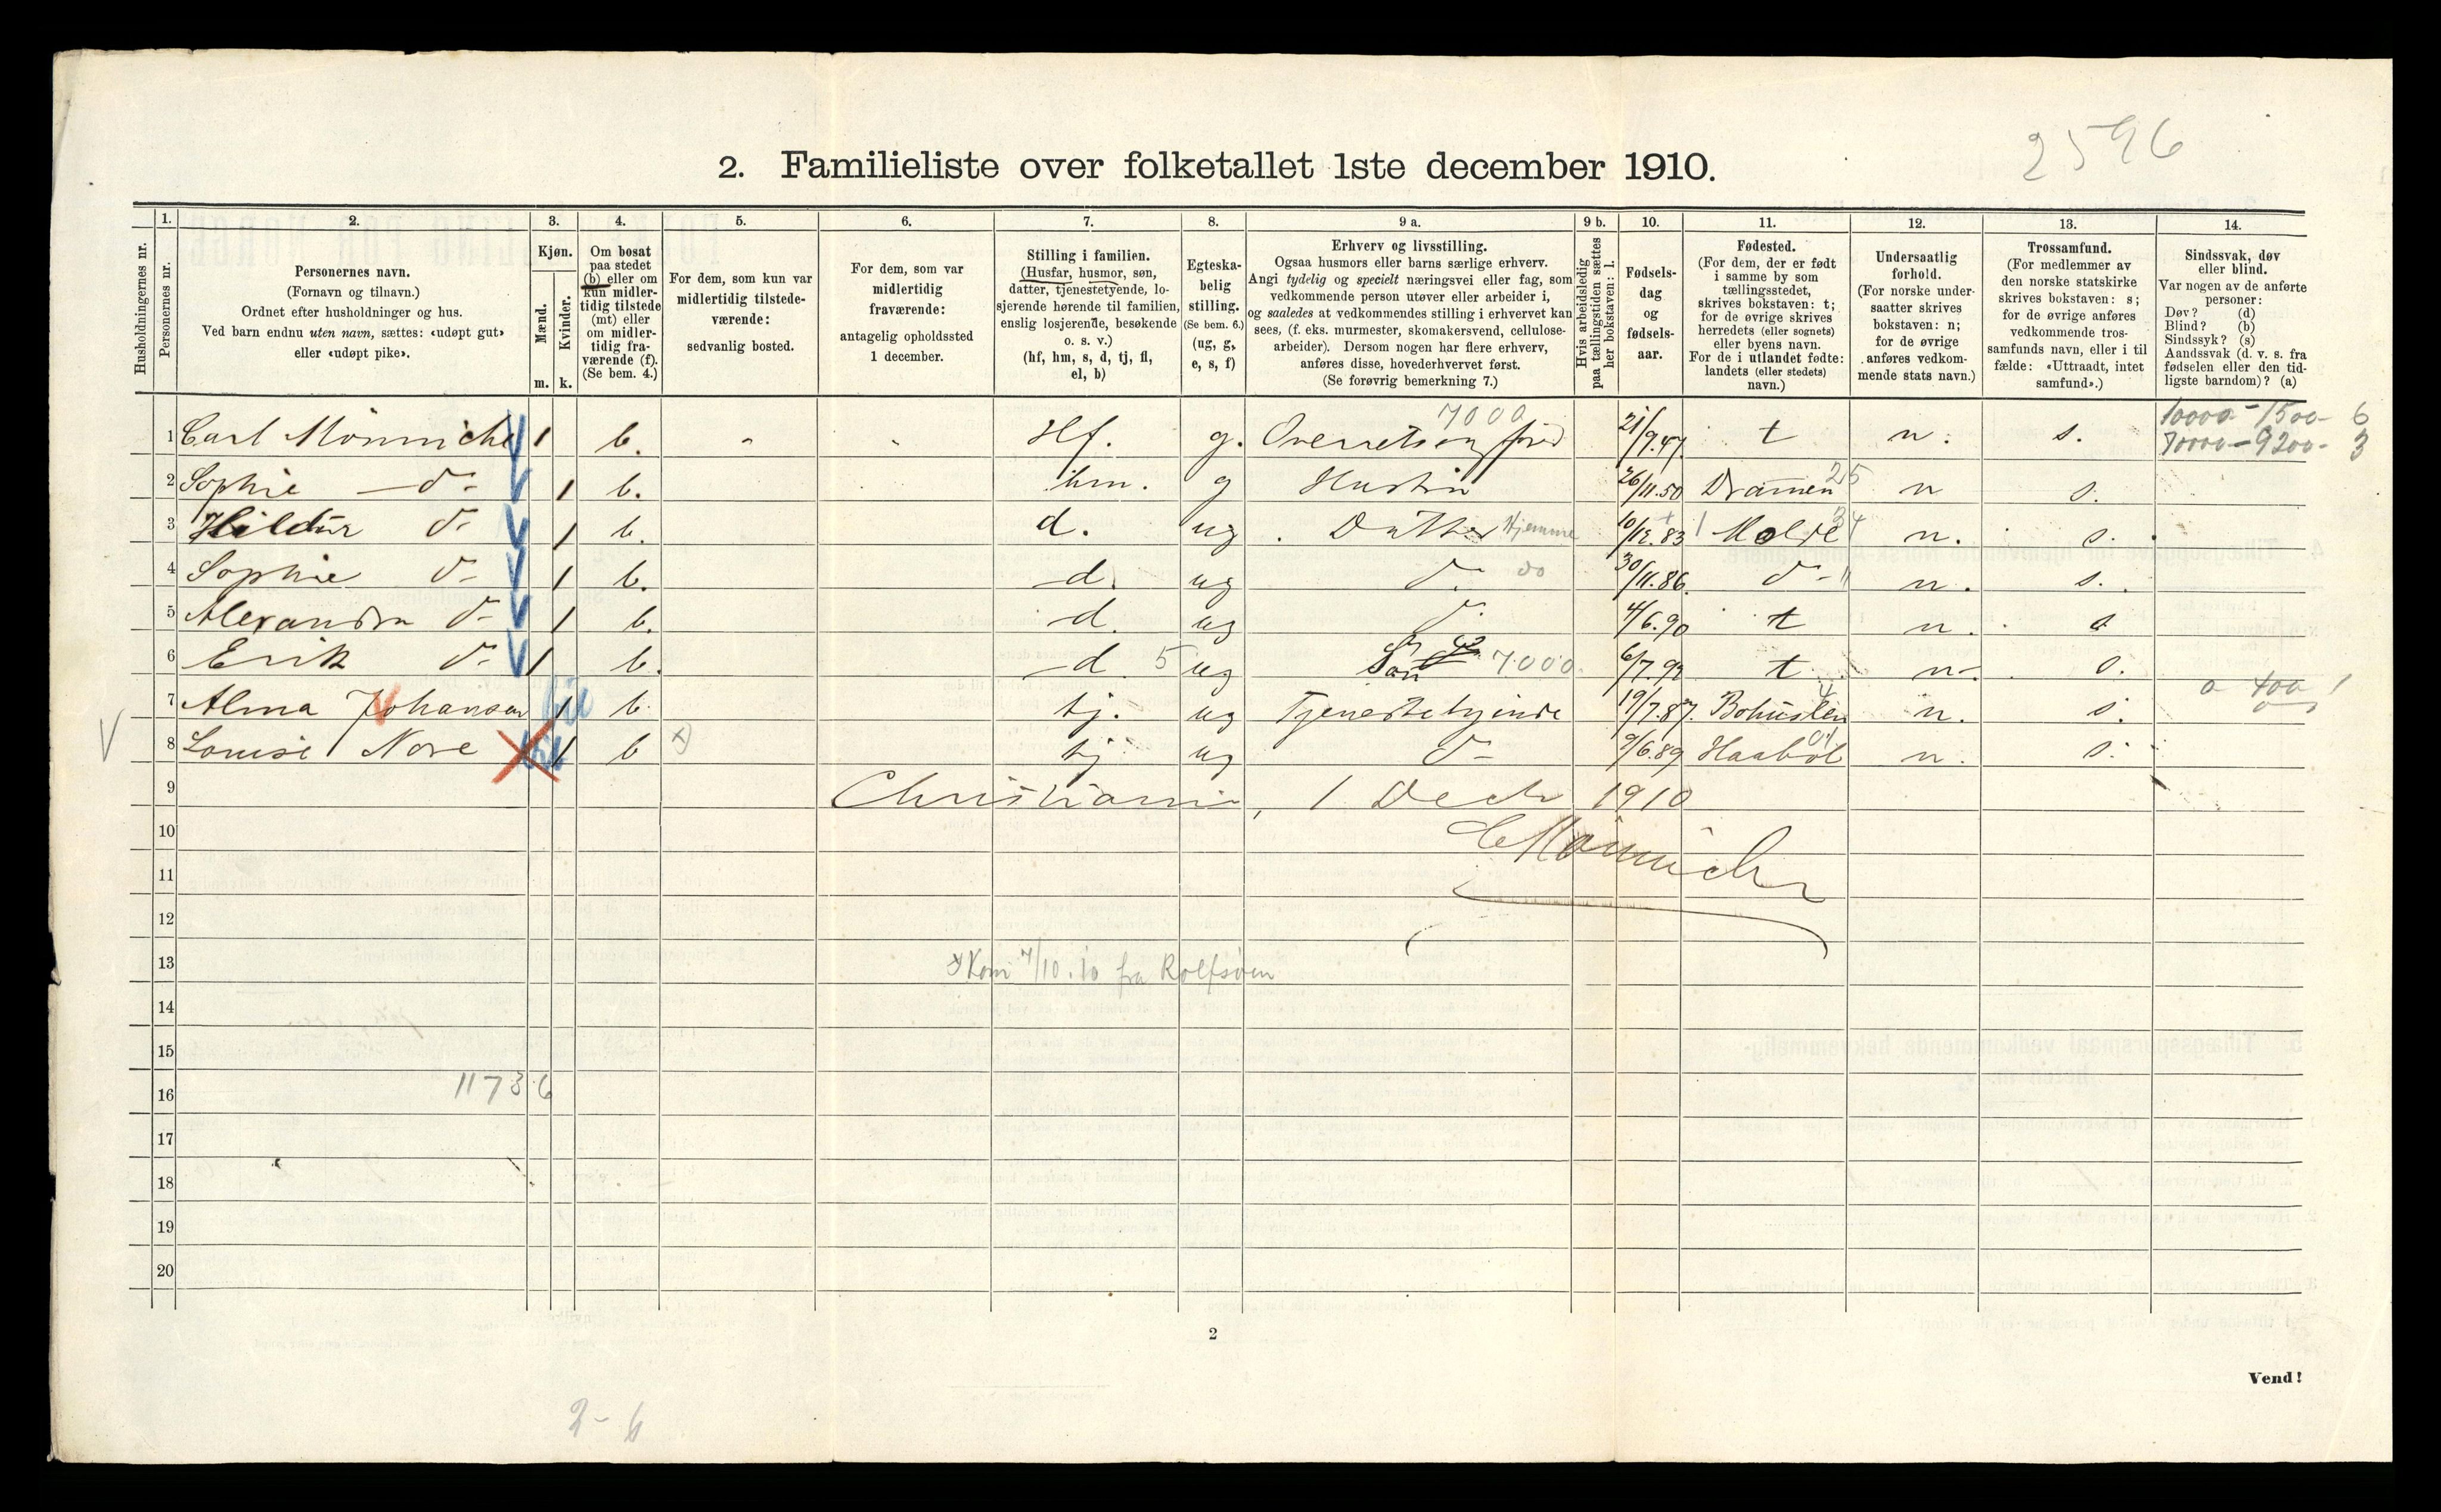 2596
2. Familieliste over folketallet 1ste december 1910.
Husholdningernes nr.
1.
Personernes nr.
2.
Personernes navn.
(Fornavn og tilnavn.)
Ordnet efter husholdninger og hus.
Ved barn endnu uten navn, sættes: «udøpt gut»
eller «udøpt pike».
3.
Kjøn.
Mænd.
Kvinder.
m. k.
4.
Om bosat
paa stedet
(b) eller om
kun midler-
tidig tilstede
(mt) eller
om midler-
tidig fra-
værende (f).
(Se bem. 4.)
5.
For dem, som kun var
midlertidig tilstede-
værende:
sedvanlig bosted.
6.
For dem, som var
midlertidig
fraværende:
antagelig opholdssted
1 december.
7.
Stilling i familien.
(Husfar, husmor, søn,
datter, tjenestetyende, lo-
sjerende hørende til familien,
enslig losjerende, besøkende
o. s. v.)
(hf, hm, s, d, tj, fl,
el, b)
8.
Egteska-
belig
stilling.
(Se bem. 6.)
(ug, g,
e, s, f)
9 a.
Erhverv og livsstilling.
Ogsaa husmors eller barns særlige erhverv.
Angi tydelig og specielt næringsvei eller fag, som
vedkommende person utøver eller arbeider i,
og saaledes at vedkommendes stilling i erhvervet kan
sees, (f. eks. murmester, skomakersvend, cellulose-
arbeider). Dersom nogen har flere erhverv,
anføres disse, hovederhvervet først.
(Se forøvrig bemerkning 7.)
9 b.
Hvis arbeidsledig
paa tællingstiden sættes
her bokstaven: l.
10.
Fødsels-
dag
og
fødsels-
aar.
11.
Fødested.
(For dem, der er født
i samme by som
tællingsstedet,
skrives bokstaven: t;
for de øvrige skrives
herredets (eller sognets)
eller byens navn.
For de i utlandet fødte:
landets (eller stedets)
navn.)
12.
Undersaatlig
forhold.
(For norske under-
saatter skrives
bokstaven: n;
for de øvrige
anføres vedkom-
mende stats navn.)
13.
Trossamfund.
(For medlemmer av
den norske statskirke
skrives bokstaven: s;
for de øvrige anføres
vedkommende tros-
samfunds navn, eller i til
fælde: «Uttraadt, intet
samfund».)
14.
Sindssvak, døv
eller blind.
Var nogen av de anførte
personer:
Døv? (d)
Blind? (b)
Sindssyk? (s)
Aandssvak (d. v. s. fra
fødselen eller den tid-
ligste barndom)? (a)
7000 10000 - 1500 - 6
1 Carl Mönniche 1 b. Hf. g. 21/9.47. t n. s. 70000 - 9200 - 3
2 Sophie d- 1 b. hm. g Hustru 26/11.50 Dramen 25 n s.
3 Hildur d- 1 b. d. ug Datter Hjemme 10/12.83 Molde 34 n. s.
4 Sophie d- 1 b. d. ug d. do 30/11.86. d- " n. s.
5 Alexandra d- 1 b. d. ug d. 4/6.90 t n. s
6 Erik d- 1 b. d 5 ug Søn 7000 6/7.92 t n- s.
7 Alma Johansen 1 b. tj. ug Tjenestetyende 19/7.87. Bohuslen n. s. 400 1
8 Louise Nore 1 b x) tj ug d- 9/6.89 Haabøl 01 n. s.
9 Christiania, 1 Decbr 1910
10 CMönniche
11
12
13 x) Kom 7/10.10 fra Rolfsøen
14
15
16 11736
17
18
19
20
2
Vend!
2 - 6